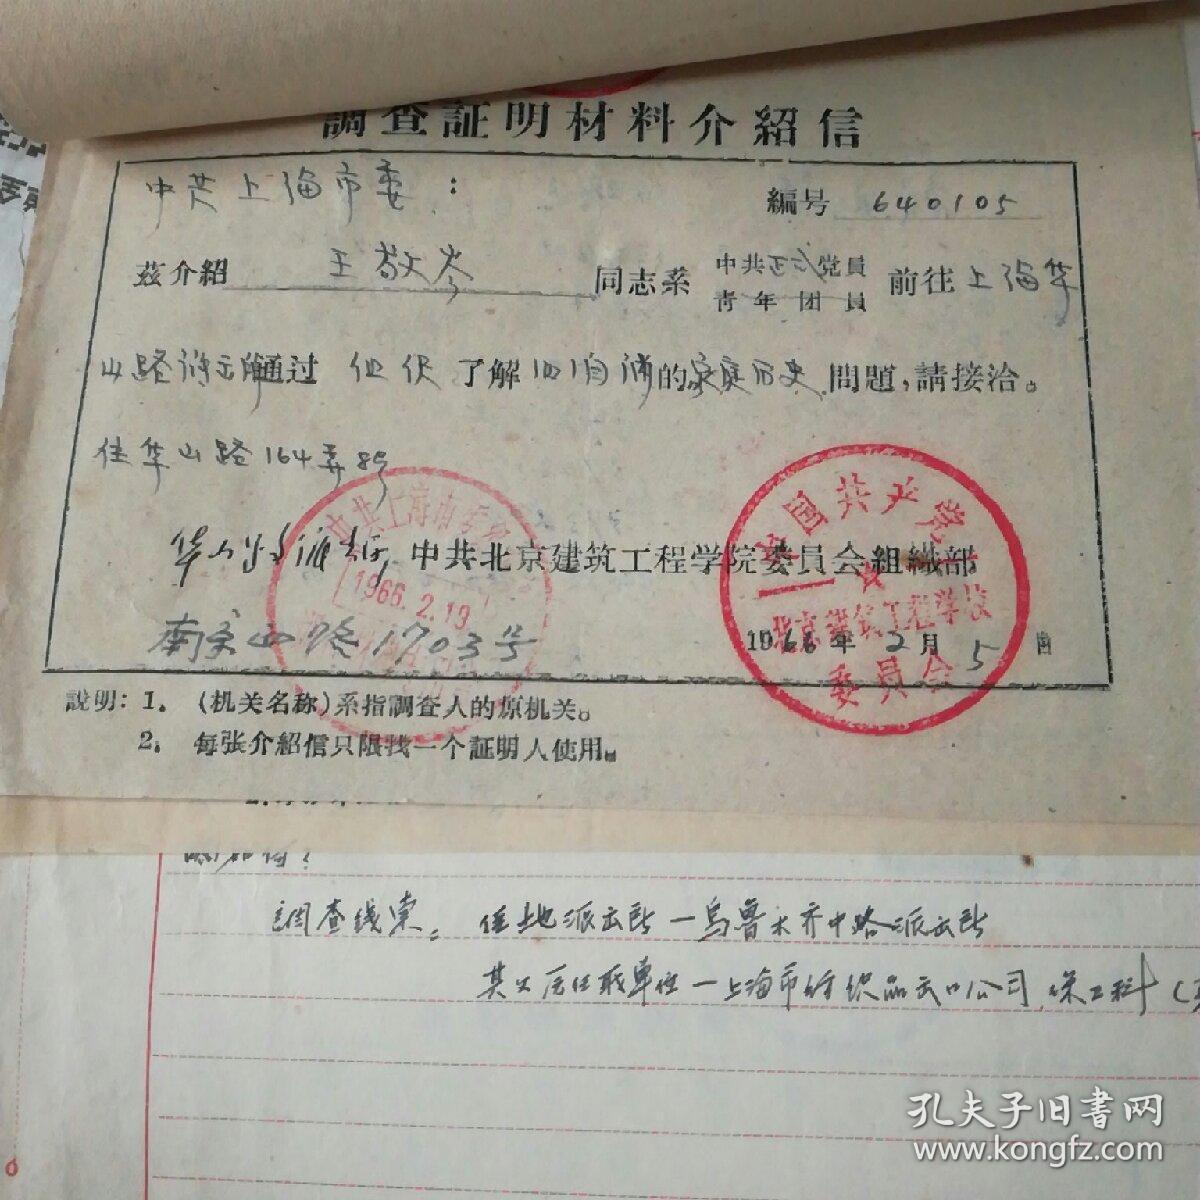 調查証明材料介紹信
中共上海市委：
編号 640105
茲介紹 王敬岑 同志系 中共正式党員 前往上海华
青年团員
山路 通过 了解 的家庭历史 問題，請接洽。
住华山路164弄8号
中共北京建筑工程学院委員会組織部
南京西路1703号
1966年2月5日
中共上海市委
1966.2.19
中国共产党
北京建筑工程学校
委員会
説明：1。（机关名称）系指調查人的原机关。
2。每张介紹信只限找一个証明人使用。
調查线索。住地派出所—乌鲁木齐中路派出所
其父原任职单位—上海市纺织品出口公司
孔夫子旧书网
www.kongfz.com